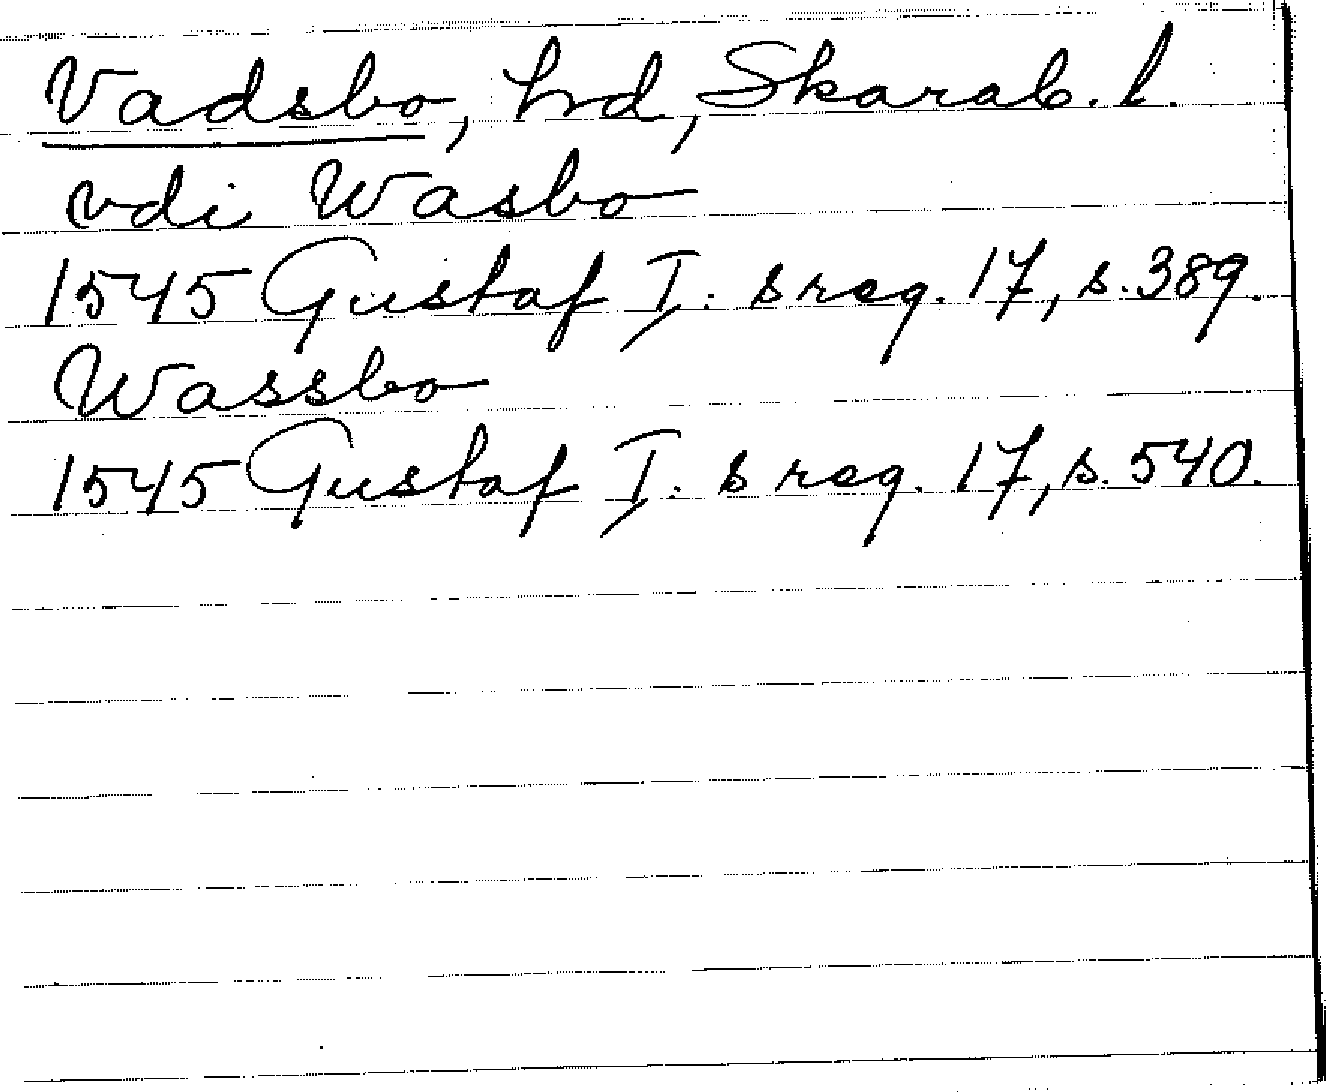 Vadsbo, hrd, Skarab. l.
vdi Wasbo
1545 Gustaf I:s reg. 17, s. 389.
Wassbo
1545 Gustaf I:s reg. 17, s. 540.